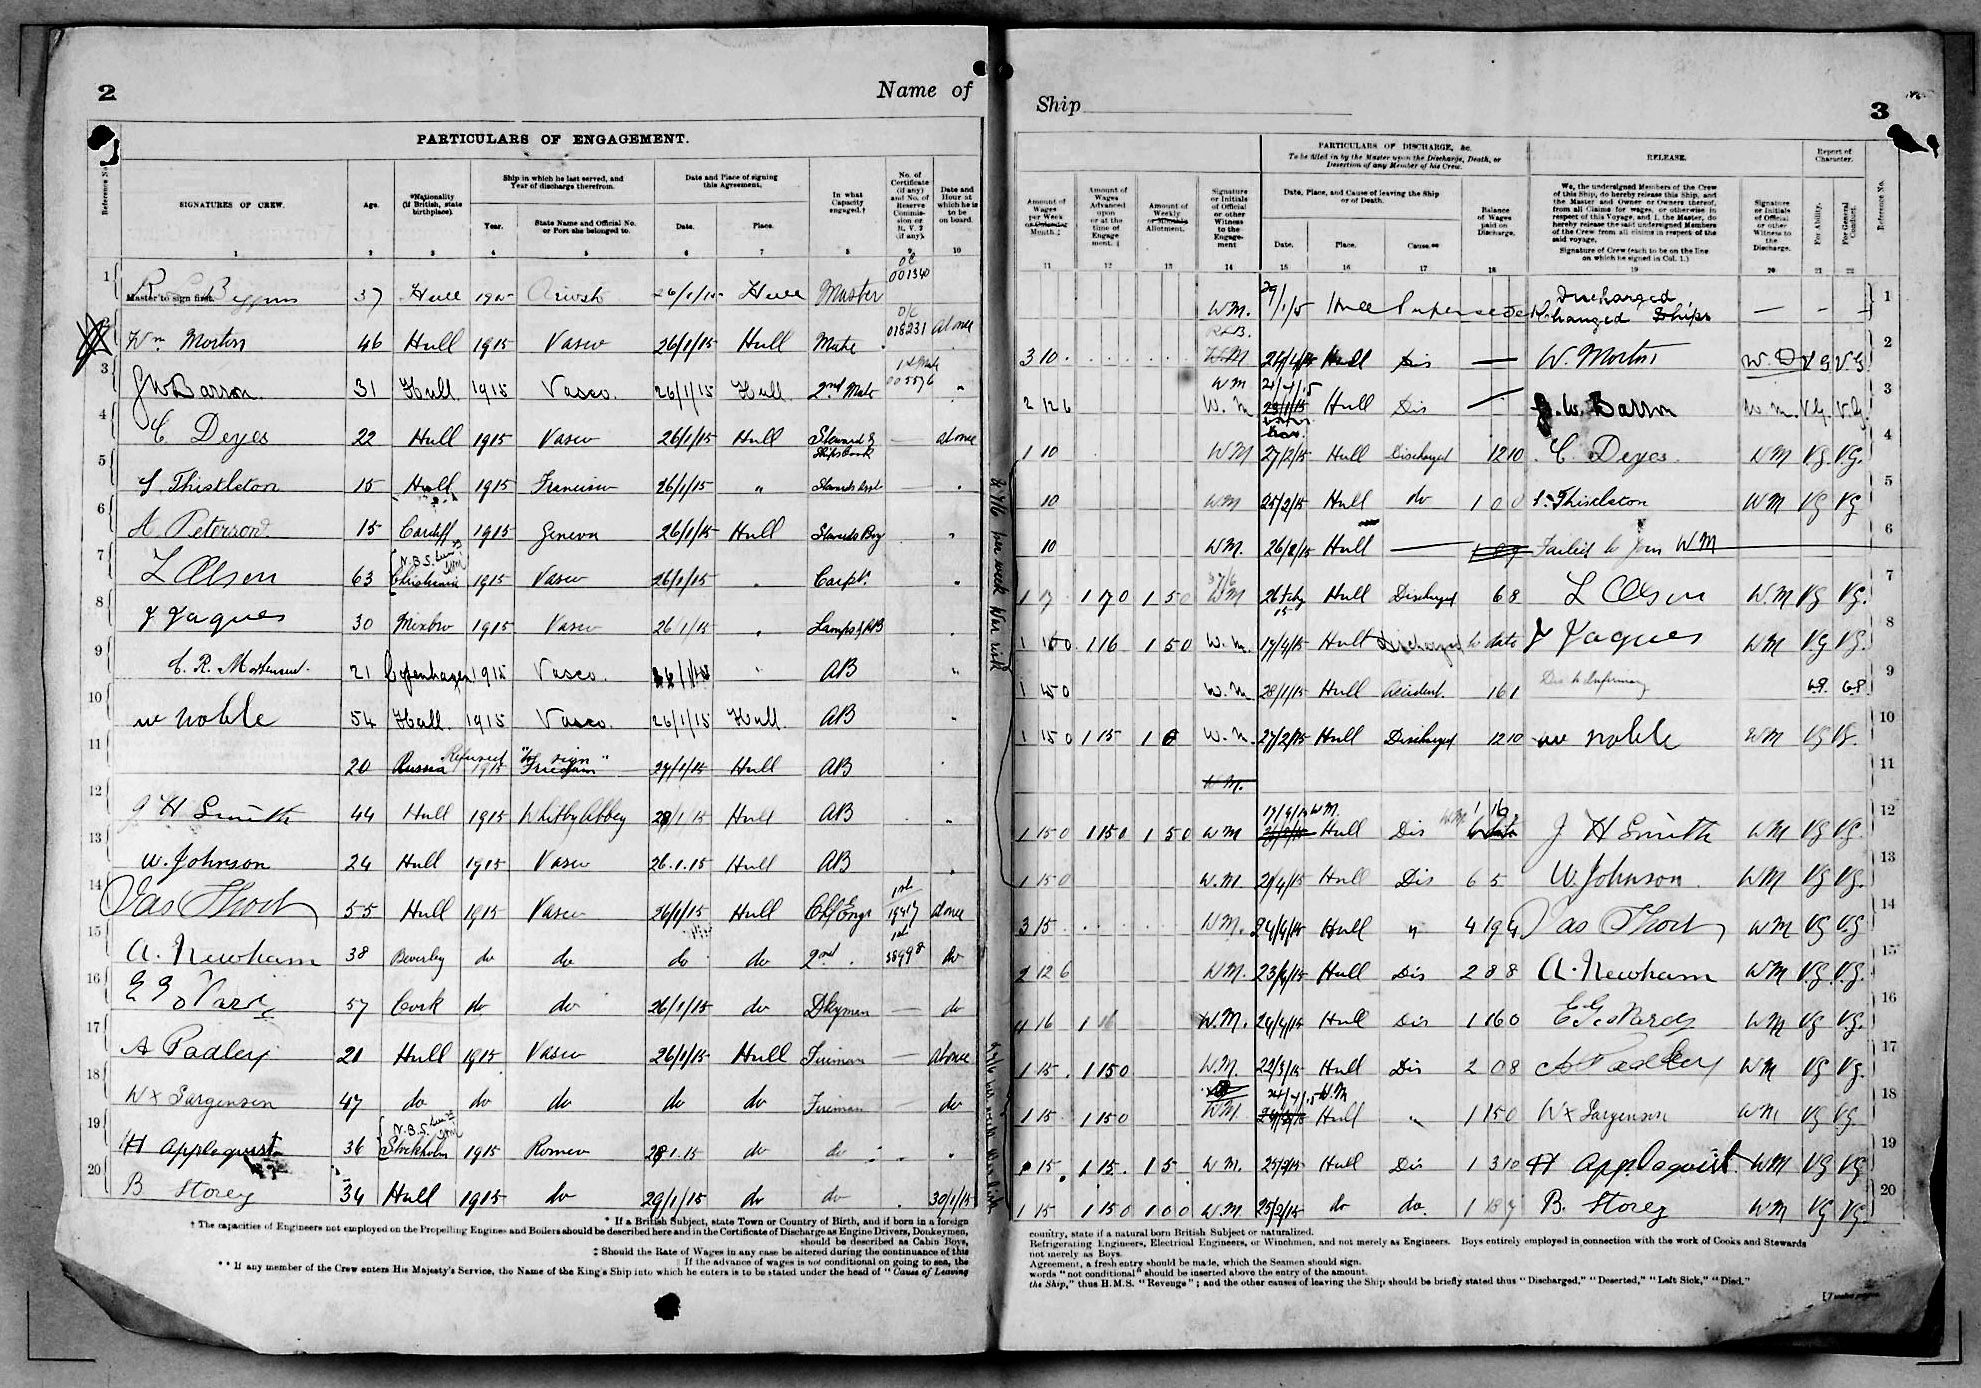 2
Name of
PARTICULARS OF ENGAGEMENT.
Reference No.
SIGNATURES OF CREW.
Age.
*Nationality (if British, state birthplace).
Ship in which he last served, and Year of discharge therefrom.
Year.
State Name and Official No. or Port she belonged to.
Date and Place of signing this Agreement.
Date.
Place.
In what Capacity engaged.†
No. of Certificate (if any) and No. of Reserve Commission or R. V. 2 (if any).
Date and Hour at which he is to be on board.
1 2 3 4 5 6 7 8 9 10
1 Master to sign first. 37 Hull 26/1/15 Hull Master 001340
2 Wm Morton 46 Hull 1915 Vasco 26/1/15 Hull Mate 018231 at once
3 J W Barron 31 Hull 1915 Vasco 26/1/15 Hull 2nd Mate 1st Mate 005576 "
4 C Deyes 22 Hull 1915 Vasco 26/1/15 Hull Steward & Ships Cook — at once
5 Thistleton 15 Hull 1915 Francisco 26/1/15 " Stewards Asst "
6 A Peterson 15 Cardiff 1915 Geneva 26/1/15 Hull Stewards Boy "
7 L Olsen 63 N.B.S. Christiania 1915 Vasco 26/1/15 " Carptr "
8 J Jaques 30 Mixbro 1915 Vasco 26/1/15 " Lamps & AB "
9 C. R. Mortensen 21 Copenhagen 1915 Vasco " AB "
10 W Noble 54 Hull 1915 Vasco 26/1/15 Hull AB "
11 20 Russia Refused "to sign" 1915 27/1/15 Hull AB "
12 J H Smith 44 Hull 1915 Whitby Abbey 28/1/15 Hull AB "
13 W. Johnson 24 Hull 1915 Vasco 26.1.15 Hull AB "
14 Jas Short 55 Hull 1915 Vasco 26/1/15 Hull Chf Engr 1st at once
15 A. Newham 38 Beverley do do do do 2nd 1st 38998 do
16 57 Cork do do 26/1/15 do Dkyman — do
17 A Padley 21 Hull 1915 Vasco 26/1/15 Hull Fireman — at once
18 W x Jargensen 47 do do do do do Fireman do
19 H Applequist 36 N.B.S. Stockholm 1915 Romeo 28.1.15 do do "
20 B Storey 34 Hull 1915 do 29/1/15 do do 30/1/15
* If a British Subject, state Town or Country of Birth, and if born in a foreign
† The capacities of Engineers not employed on the Propelling Engines and Boilers should be described here and in the Certificate of Discharge as Engine Drivers, Donkeymen,
should be described as Cabin Boys,
‡ Should the Rate of Wages in any case be altered during the continuance of this
|| If the advance of wages is not conditional on going to sea, the
** If any member of the Crew enters His Majesty's Service, the Name of the King's Ship into which he enters is to be stated under the head of "Cause of Leaving
Ship
3
Amount of Wages per Week or Calendar Month.‡
Amount of Wages Advanced upon or at the time of Engagement.||
Amount of Weekly or Monthly Allotment.
Signature or Initials of Official or other Witness to the Engagement
PARTICULARS OF DISCHARGE, &c.
To be filled in by the Master upon the Discharge, Death, or Desertion of any Member of his Crew.
Date, Place, and Cause of leaving the Ship or of Death.
Date.
Place.
Cause.**
Balance of Wages paid on Discharge.
RELEASE.
We, the undersigned Members of the Crew of this Ship, do hereby release this Ship, and the Master and Owner or Owners thereof, from all Claims for wages, or otherwise in respect of this Voyage, and I, the Master, do hereby release the said undersigned Members of the Crew from all claims in respect of the said voyage.
Signature of Crew (each to be on the line on which he signed in Col. 1.)
Signature or Initials of Official or other Witness to the Discharge.
Report of Character.
For Ability.
For General Conduct.
Reference No.
11 12 13 14 15 16 17 18 19 20 21 22
W M. 29/1/15 Hull Superseded Discharged changed Ships — — — 1
3 10 . R L B. W M Hull Dis — W. Morton V.G V.G. 2
2 12 6 W M W. M 24/4/15 Hull Dis — J. W. Barron W M. V.G. V.G. 3
1 10 W M 27/2/15 Hull Discharged 12 10 C. Deyes. W M V.G. V.G. 4
10 W M 25/2/15 Hull do 1 0 0 Thistleton W M VG VG 5
10 W M. Hull — Failed to Join W M 6
1 17 1 17 0 1 5 0 W M 26 Feby 15 Hull Discharged 6 8 L Olsen W.M VG VG. 7
1 15 0 . 1 1 5 0 W. M. 17/4/15 Hull Discharged to date J Jaques W M VG VG. 8
1 15 0 W. M. 28/1/15 Hull Accident. 16 1 Dis to Infirmary 9
1 15 0 1 15 W. M. 27/2/15 Hull Discharged 12 10 W Noble W M VG VG. 10
W M. 11
1 15 0 1 15 0 1 5 0 W M W M. Hull Dis J H Smith W M VG VG. 12
1 15 0 W. M. Hull Dis 6 5 W. Johnson W M VG VG. 13
3 15 . W M. 24/4/15 Hull " 4 19 4 Jas Short W M V.G V.G. 14
2 12 6 W M. 23/4/15 Hull Dis 2 8 8 A. Newham W M V.G. V.G. 15
16 W. M. 24/4/15 Hull Dis 1 16 0 W M VG VG. 16
1 15 . 1 15 0 W. M. 22/3/15 Hull Dis 2 0 8 A Padley W M VG VG. 17
1 15 1 15 0 W M. 24/4/15 W M Hull " 1 15 0 W x Jargenson W M. VG VG. 18
1 15 . 1 15 . 1 5 W M. Hull Dis 1 3 10 H Applequist W M VG VG. 19
1 15 1 15 0 1 0 0 W. M 25/2/15 do do. B. Storey W M VG VG. 20
37/6 per week War risk
country, state if a natural born British Subject or naturalized.
Refrigerating Engineers, Electrical Engineers, or Winchmen, and not merely as Engineers. Boys entirely employed in connection with the work of Cooks and Stewards
not merely as Boys.
Agreement, a fresh entry should be made, which the Seamen should sign.
words "not conditional" should be inserted above the entry of the amount.
the Ship," thus H.M.S. "Revenge"; and the other causes of leaving the Ship should be briefly stated thus "Discharged," "Deserted," "Left Sick," "Died."
[Twelve pages.